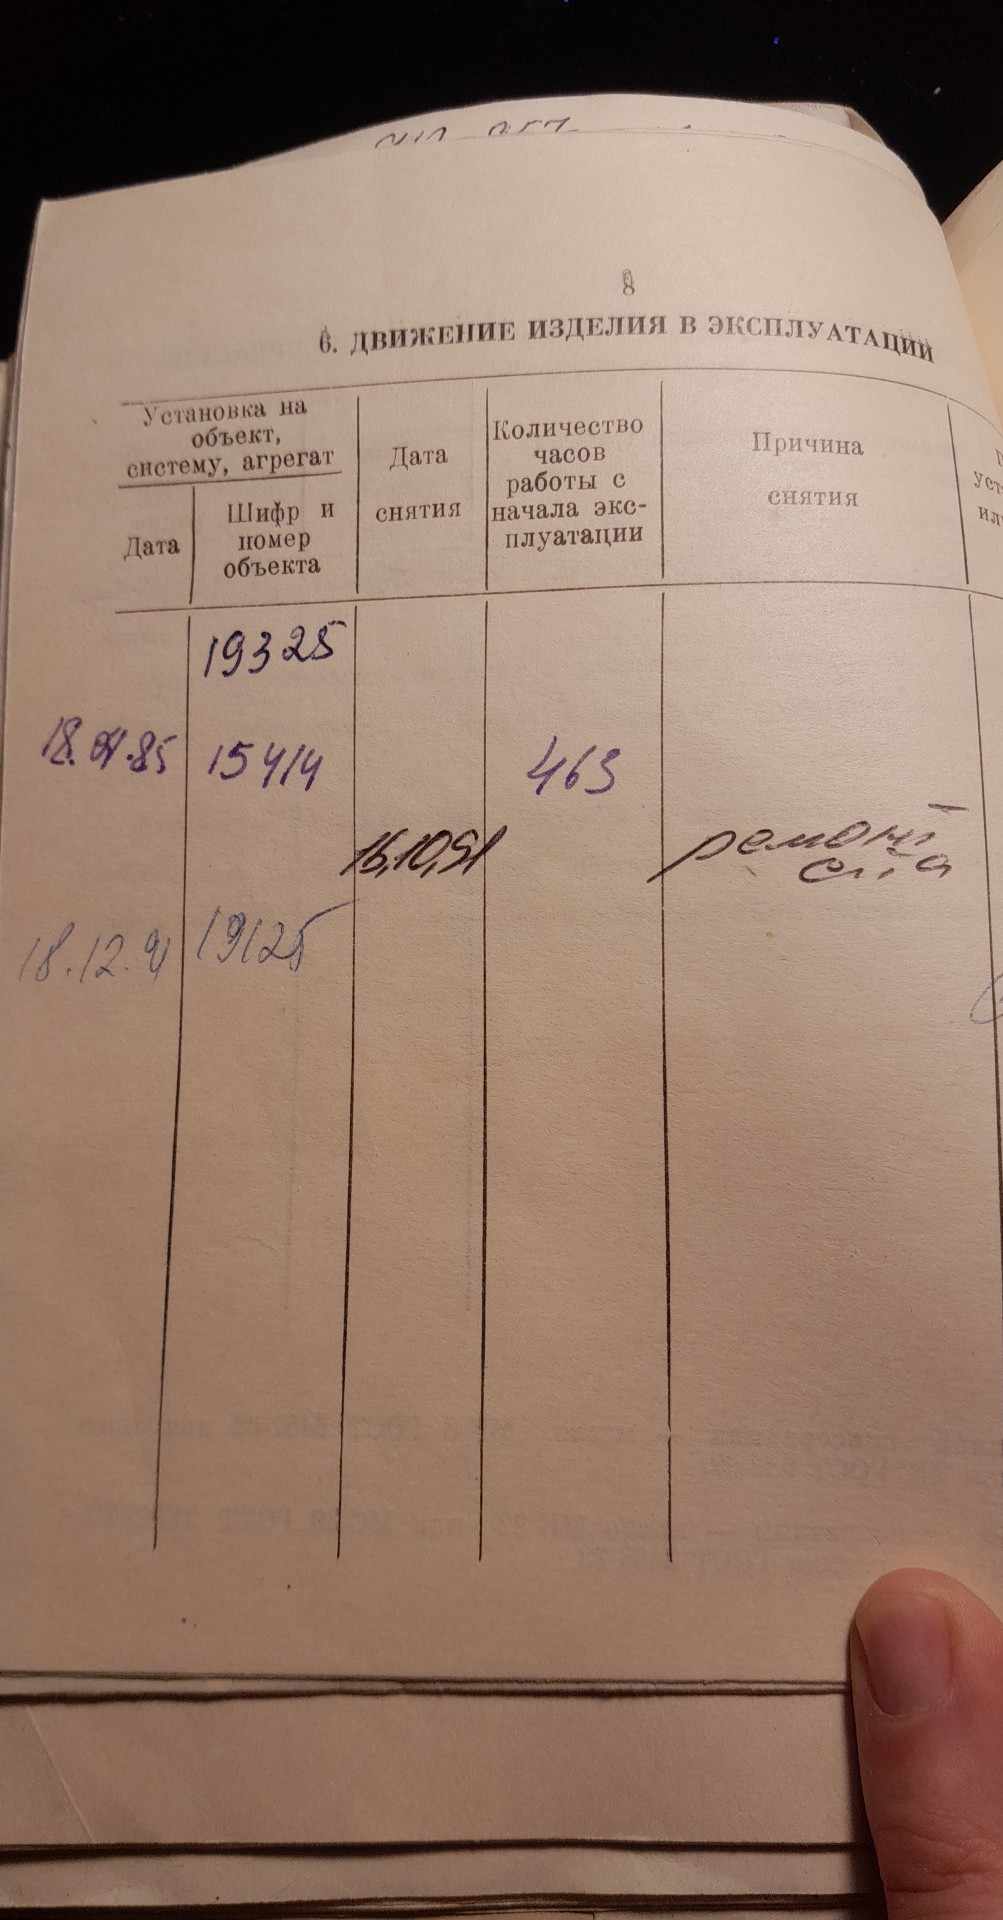 8
6. ДВИЖЕНИЕ ИЗДЕЛИЯ В ЭКСПЛУАТАЦИИ
Установка на
объект,
систему, агрегат
Дата
Шифр и
номер
объекта
Дата
снятия
Количество
часов
работы с
начала экс-
плуатации
Причина
снятия
19325
18.04.85 15414 463
16,10,91 ремонт
18.12.91 19125